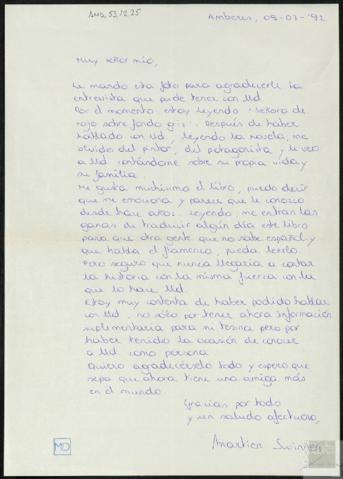 AMD, 53, 12.25
Amberes, 09-03-'92
Muy señor mío,
Le mando esta foto para agradecerle la
entrevista que pude tener con Ud.
Por el momento, estoy leyendo "Señora de
rojo sobre fondo gris". Después de haber
hablado con Ud, leyendo la novela, me
olvido del pintor, del protagonista, y le veo
a Ud contándome sobre su propia vida y
su familia.
Me gusta muchísimo el libro, puedo decir
que me emociona y parece que le conozco
desde hace años. Leyendo, me entran las
ganas de traducir algún día este libro
para que otra gente que no sabe español y
que habla el flamenco, pueda leerlo.
Pero seguro que nunca llegaría a contar
la historia con la misma fuerza con la
que lo hace Ud.
Estoy muy contenta de haber podido hablar
con Ud, no sólo por tener ahora información
suplementaria para mi tesina pero por
haber tenido la ocasión de conocer
a Ud. como persona.
Quiero agradecérselo todo y espero que
sepa que ahora tiene una amiga más
en el mundo.
Gracias por todo
y un saludo afectuoso,
MD